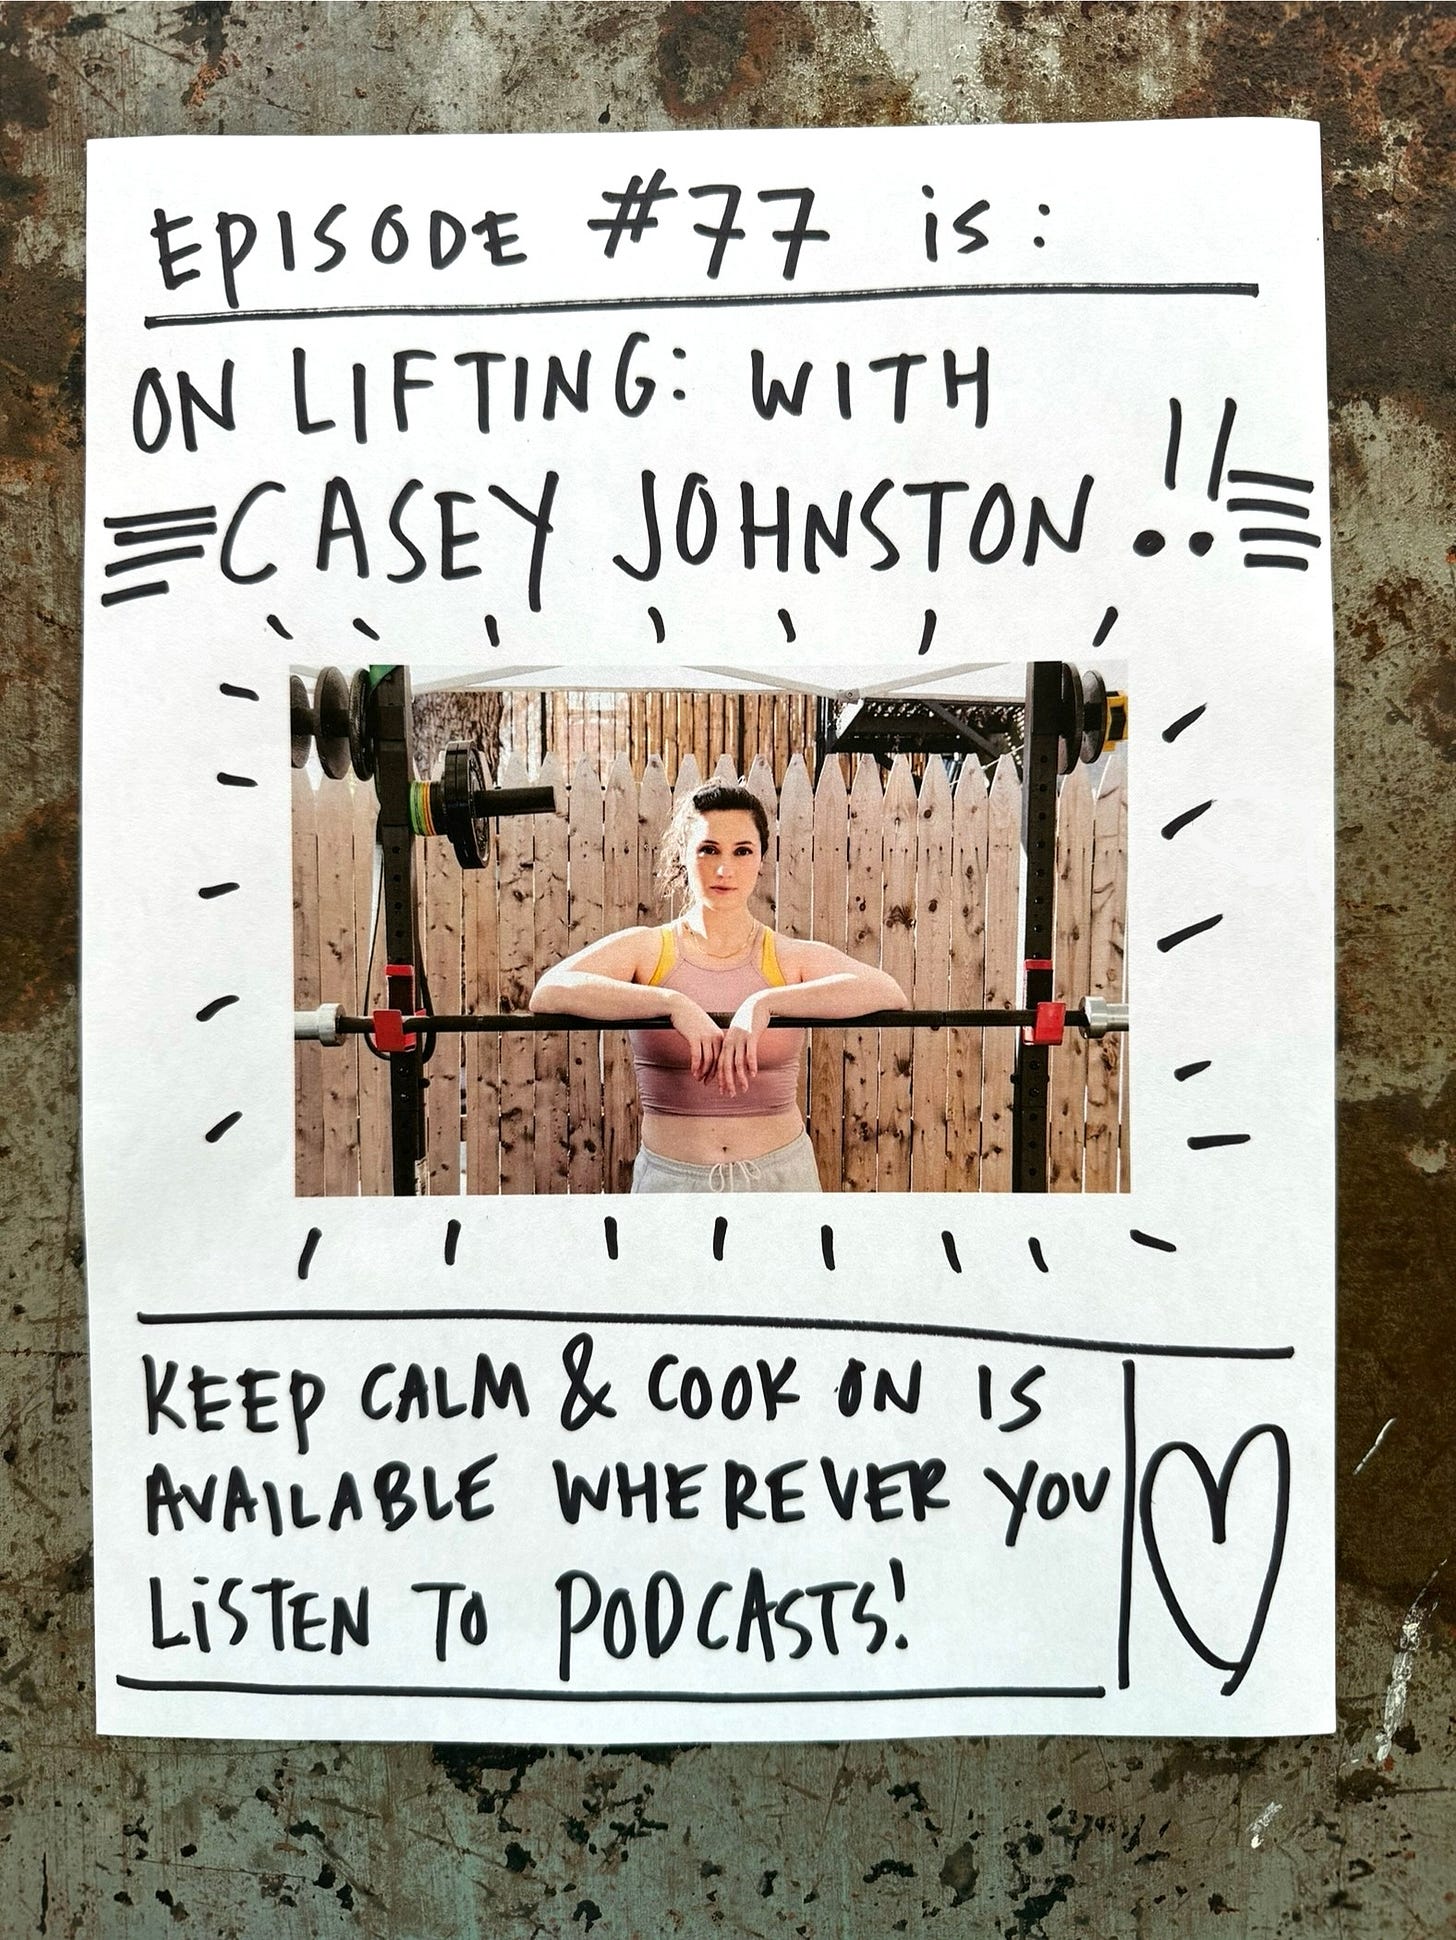 EPISODE #77 is:
ON LIFTING: WITH
CASEY JOHNSTON!!
KEEP CALM & COOK ON IS
AVAILABLE WHEREVER YOU
LiSTEN TO PODCASTS!